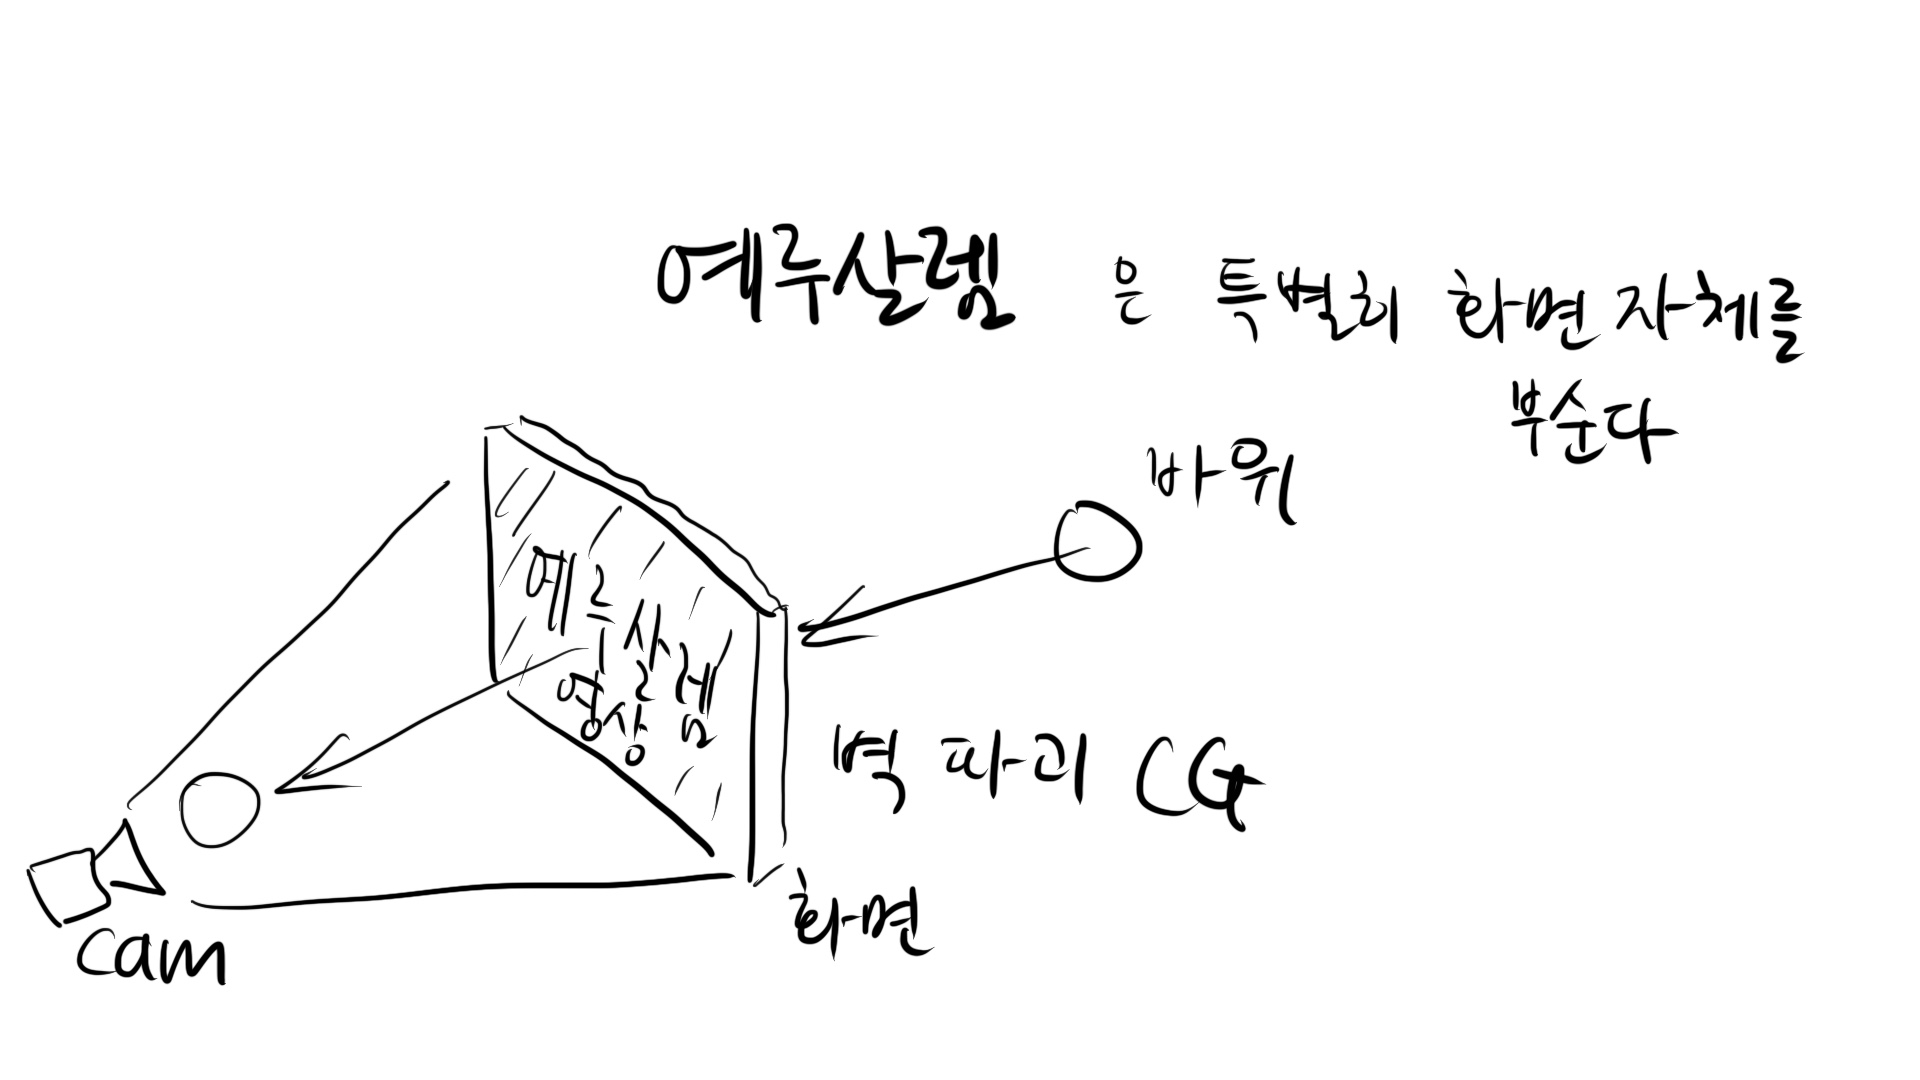 예루살렘 은 특별히 화면 자체를
부순다
바위
예루살렘
영상
벽 파괴 CG
화면
cam